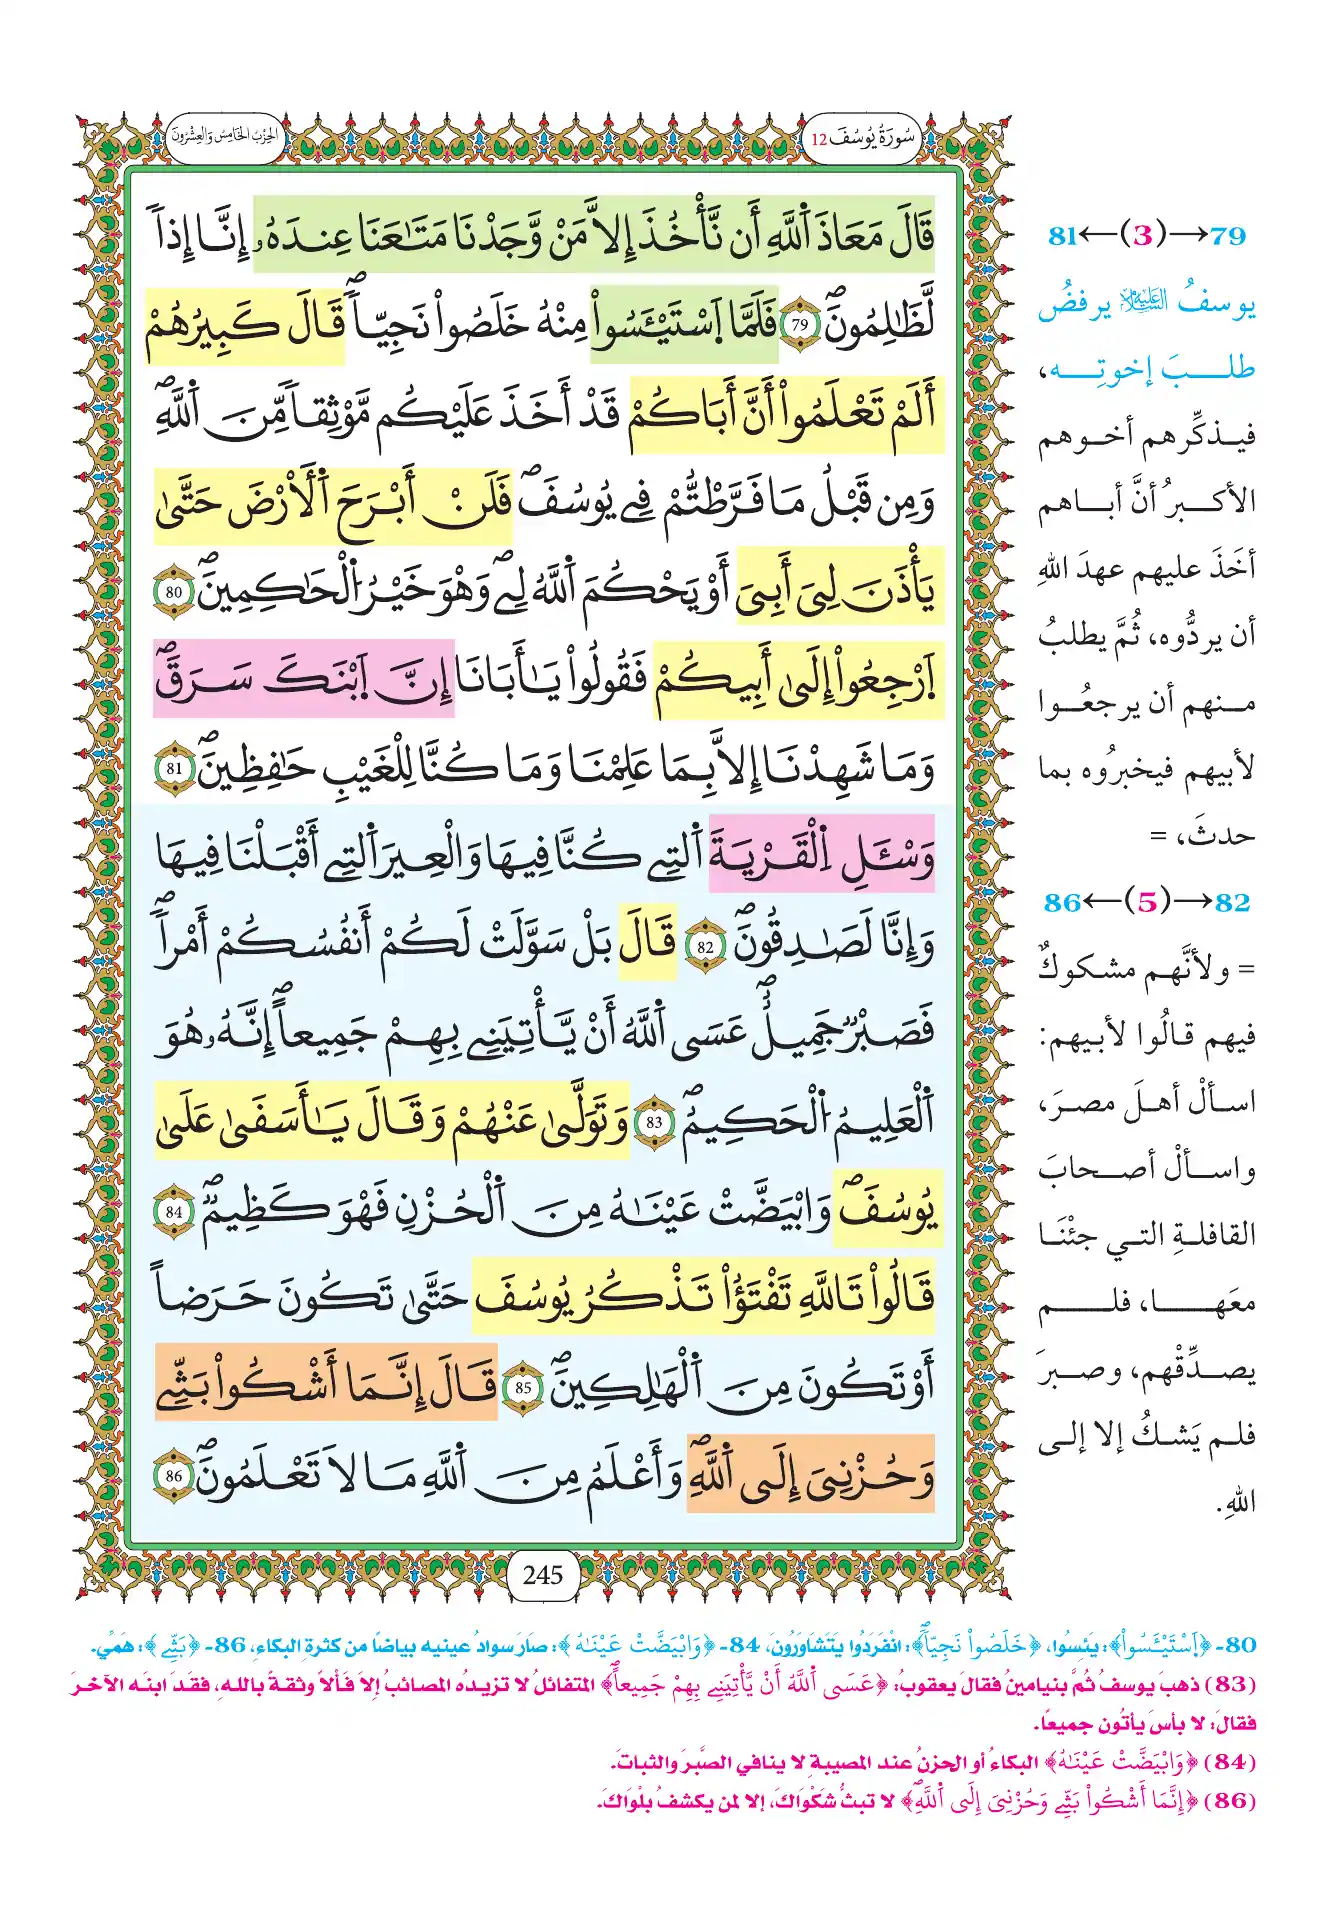 سُورَةُ يُوسُفَ 12
الحِزْبُ الخَامِسُ وَالعِشْرُونَ
قَالَ مَعَاذَ اَ۬للَّهِ أَن نَّأْخُذَ إِلَّا مَنْ وَّجَدْنَا مَتَٰعَنَا عِندَهُۥ إِنَّا إِذاً
لَّظَٰلِمُونَۖ 79 فَلَمَّا اَ۪سْتَيْـَٔسُواْ مِنْهُ خَلَصُواْ نَجِيّاٗۖ قَالَ كَبِيرُهُمْ
أَلَمْ تَعْلَمُوٓاْ أَنَّ أَبَاكُمْ قَدْ أَخَذَ عَلَيْكُم مَّوْثِقاٗ مِّنَ اَ۬للَّهِۖ
وَمِن قَبْلُ مَا فَرَّطتُّمْ فِے يُوسُفَۖ فَلَنْ أَبْرَحَ اَ۬لْأَرْضَ حَتَّىٰ
يَأْذَنَ لِيَ أَبِيَ أَوْ يَحْكُمَ اَ۬للَّهُ لِےۖ وَهْوَ خَيْرُ اُ۬لْحَٰكِمِينَۖ 80
اَ۪رْجِعُوٓاْ إِلَىٰٓ أَبِيكُمْ فَقُولُواْ يَٰٓأَبَانَآ إِنَّ اَ۪بْنَكَ سَرَقَۖ
وَمَا شَهِدْنَآ إِلَّا بِمَا عَلِمْنَا وَمَا كُنَّا لِلْغَيْبِ حَٰفِظِينَۖ 81
وَسْـَٔلِ اِ۬لْقَرْيَةَ اَ۬لتِے كُنَّا فِيهَا وَالْعِيرَ اَ۬لتِےٓ أَقْبَلْنَا فِيهَا
وَإِنَّا لَصَٰدِقُونَۖ 82 قَالَ بَلْ سَوَّلَتْ لَكُمْ أَنفُسُكُمْ أَمْراٗۖ
فَصَبْرٞ جَمِيلٌۖ عَسَى اَ۬للَّهُ أَنْ يَّأْتِيَنِے بِهِمْ جَمِيعاًۖ إِنَّهُۥ هُوَ
اَ۬لْعَلِيمُ اُ۬لْحَكِيمُۖ 83 وَتَوَلَّىٰ عَنْهُمْ وَقَالَ يَٰٓأَسَفَىٰ عَلَىٰ
يُوسُفَۖ وَابْيَضَّتْ عَيْنَٰهُ مِنَ اَ۬لْحُزْنِ فَهْوَ كَظِيمٞۖ 84
قَالُواْ تَاللَّهِ تَفْتَؤُاْ تَذْكُرُ يُوسُفَ حَتَّىٰ تَكُونَ حَرَضاً
أَوْ تَكُونَ مِنَ اَ۬لْهَٰلِكِينَۖ 85 قَالَ إِنَّمَآ أَشْكُواْ بَثِّے
وَحُزْنِيَ إِلَى اَ۬للَّهِۖ وَأَعْلَمُ مِنَ اَ۬للَّهِ مَا لَا تَعْلَمُونَۖ 86
245
79→(3)←81
يوسفُ عليه السلام يرفضُ
طلبَ إخوتِه،
فيذكِّرهم أخوهم
الأكبرُ أنَّ أباهم
أخَذَ عليهم عهدَ اللهِ
أن يردُّوه، ثُمَّ يطلبُ
منهم أن يرجعُوا
لأبيهم فيخبرُوه بما
حدثَ، =
82→(5)←86
= ولأنَّهم مشكوكٌ
فيهم قالُوا لأبيهم:
اسألْ أهلَ مصرَ،
واسألْ أصحابَ
القافلةِ التي جئْنَا
معَها، فلم
يصدِّقْهم، وصبرَ
فلم يَشكُ إلا إلى
اللهِ.
80- ﴿اَ۪سْتَيْـَٔسُواْ﴾: يئِسُوا، ﴿خَلَصُواْ نَجِيّاٗۖ﴾: انْفَرَدُوا يَتَشَاوَرُونَ، 84- ﴿وَابْيَضَّتْ عَيْنَٰهُ﴾: صَارَ سوادُ عينيه بياضًا من كثرةِ البكاءِ، 86- ﴿بَثِّے﴾: هَمِّي.
(83) ذهبَ يوسفُ ثُمَّ بنيامينُ فقالَ يعقوبُ: ﴿عَسَى اَ۬للَّهُ أَنْ يَّأْتِيَنِے بِهِمْ جَمِيعاًۖ﴾ المتفائلُ لا تزيدُه المصائبُ إلا فَأْلًا وثقةً باللهِ، فقَدَ ابنَه الآخرَ
فقالَ: لا بأسَ يأتُون جميعًا.
(84) ﴿وَابْيَضَّتْ عَيْنَٰهُ﴾ البكاءُ أو الحزنُ عند المصيبةِ لا ينافي الصَّبرَ والثباتَ.
(86) ﴿إِنَّمَآ أَشْكُواْ بَثِّے وَحُزْنِيَ إِلَى اَ۬للَّهِۖ﴾ لا تبثُّ شَكْوَاكَ، إلا لمن يكشفُ بلْوَاكَ.